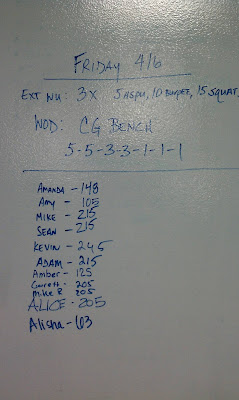 FRIDAY 4/6
EXT WU: 3X 5 HSPU, 10 BURPEE, 15 SQUAT
WOD: CG BENCH
5-5-3-3-1-1-1
AMANDA - 148
Amy - 105
MIKE - 215
SEAN - 215
KEVIN - 245
ADAM - 215
Amber - 125
Garrett - 205
Mike B 205
ALICE - 205
Alisha - 63